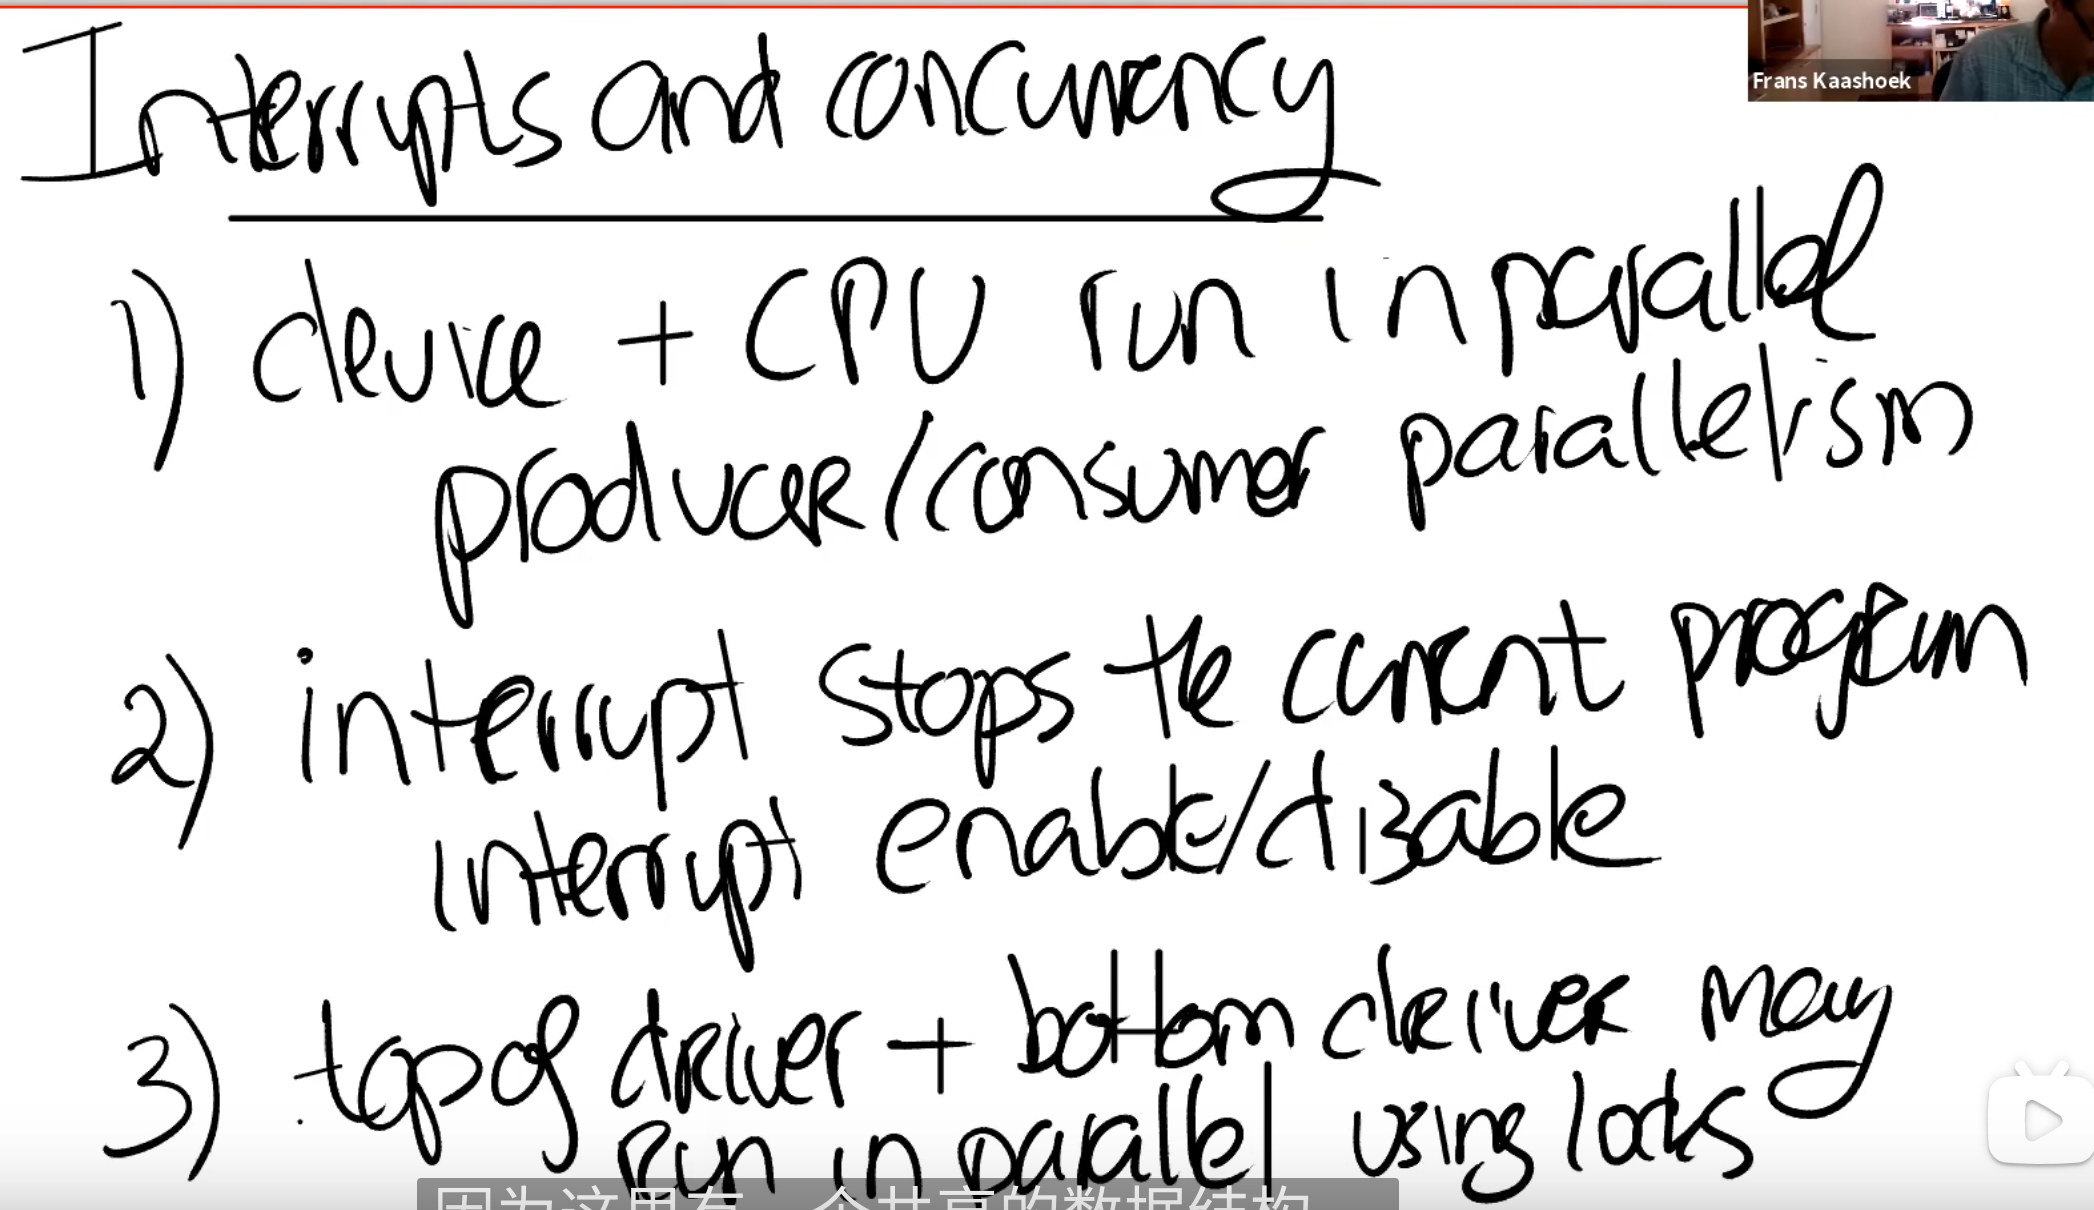 Interrupts and concurrency
Frans Kaashoek
1) device + CPU run in parallel
producer/consumer parallelism
2) interrupt stops the current program
interrupt enable/disable
3) top of driver + bottom driver may
run in parallel using locks
因为这里有一个共享的数据结构